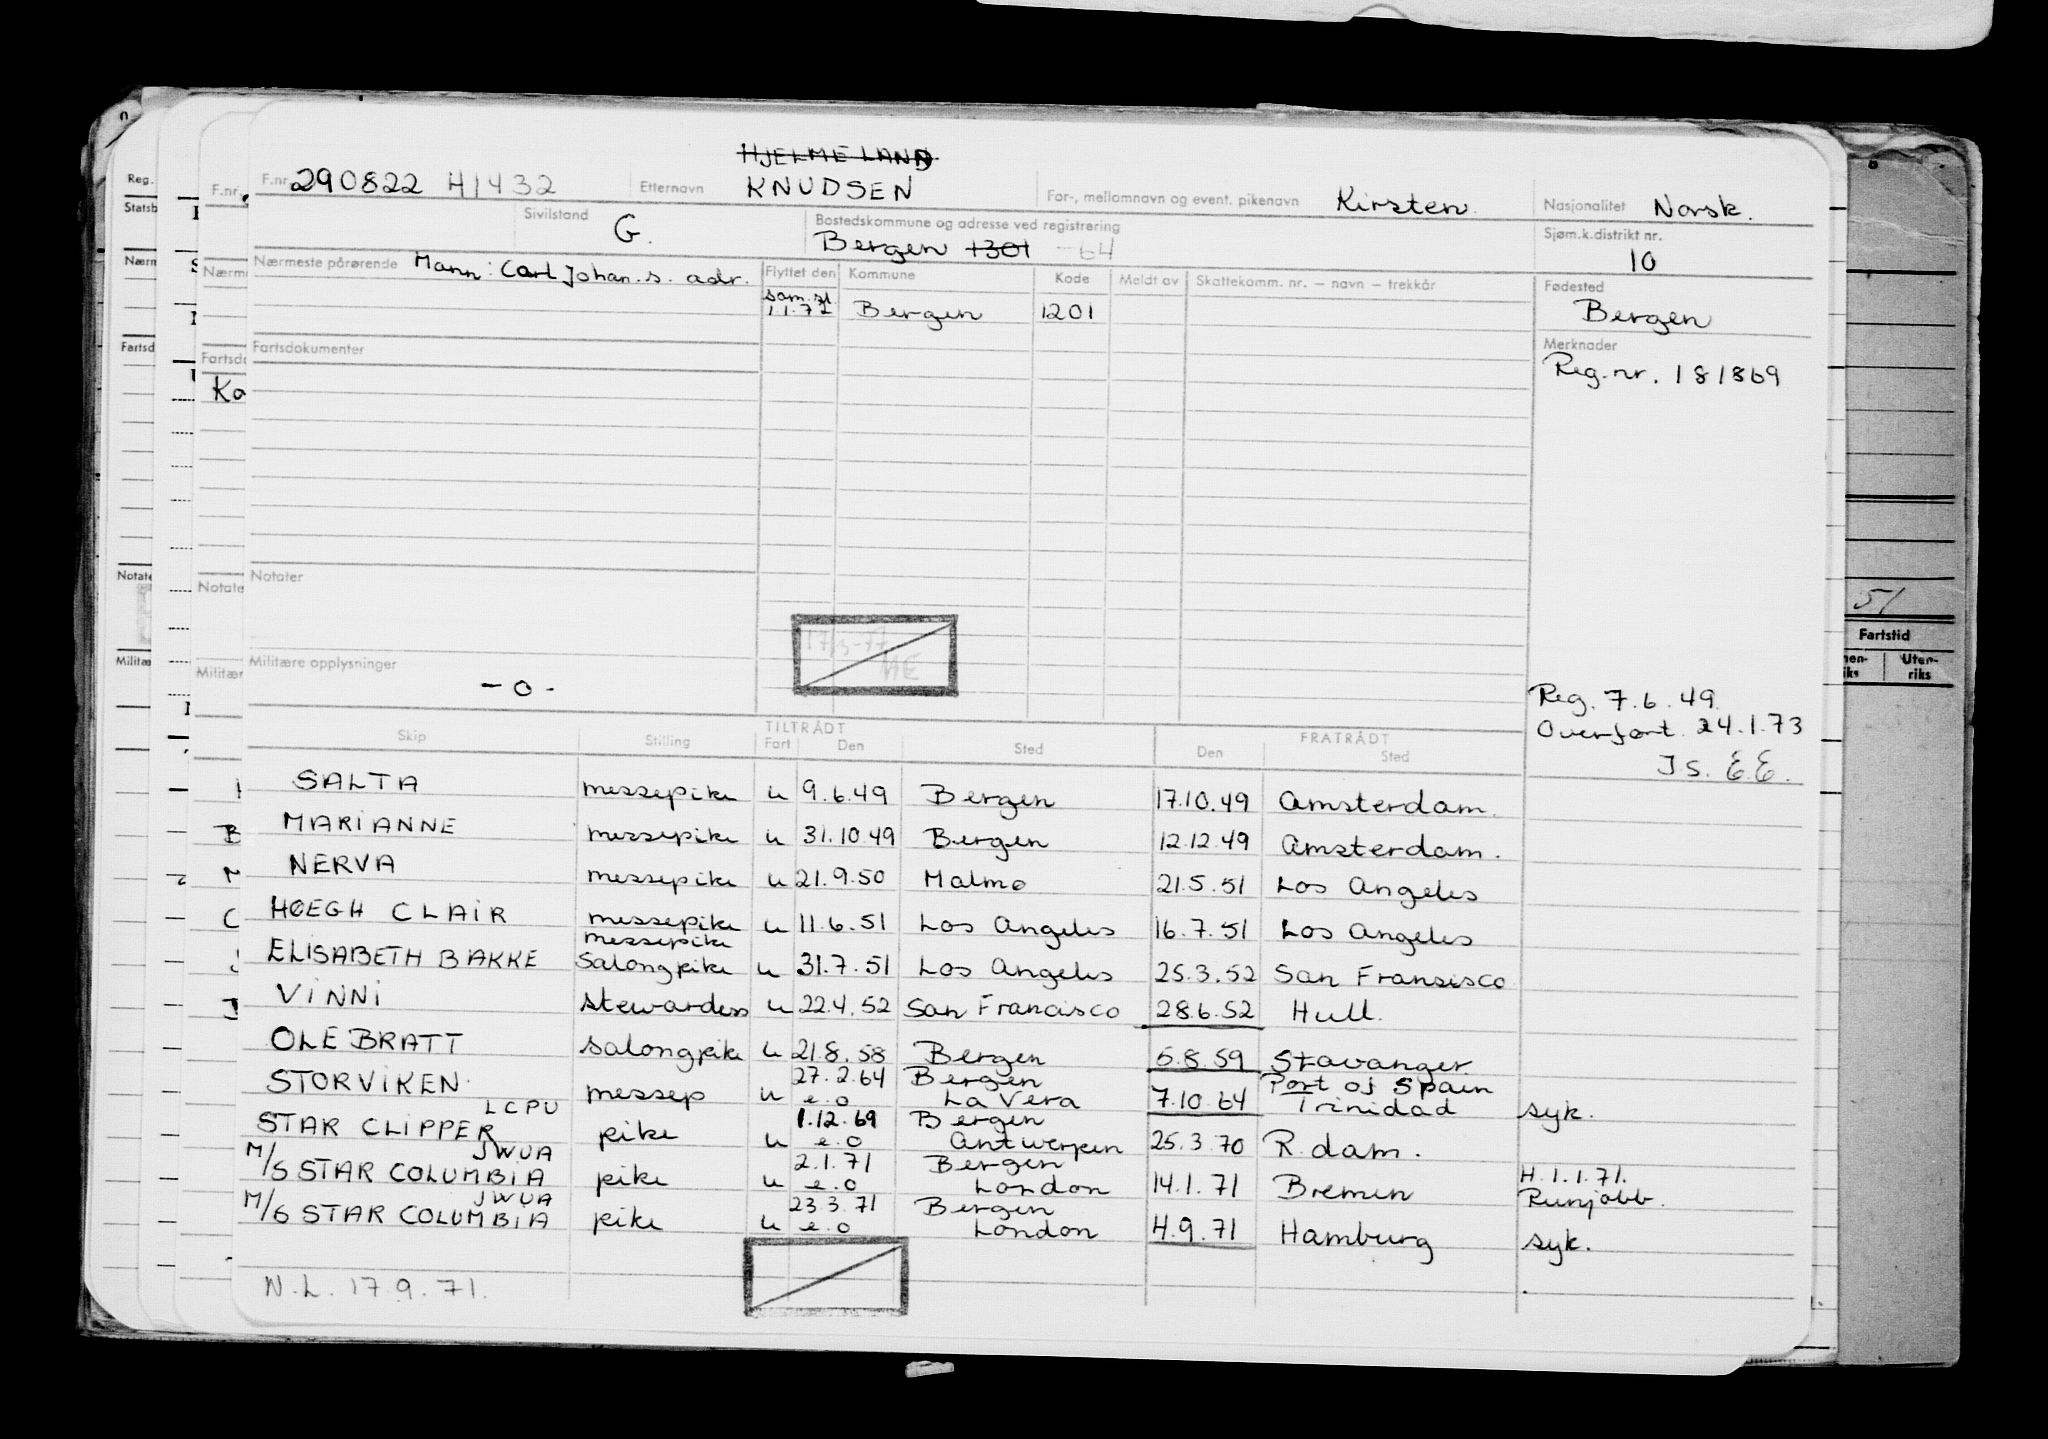 HJELMELAND
F.nr. 290822 41432 Etternavn KNUDSEN For-, mellomnavn og event. pikenavn Kirsten Nasjonalitet Norsk.
Sivilstand G. Bostedskommune og adresse ved registrering Bergen 1301 -64 Sjøm.k.distrikt nr. 10
Nærmeste pårørende Mann: Carl Johan. s. adr. Flyttet den Kommune Kode Meldt av Skattekomm. nr. – navn – trekkår Fødested
sam.st 1.1.72 Bergen 1201 Bergen
Fartsdokumenter Merknader
Reg.nr. 181869
Notater
17/3-77
HE
Militære opplysninger
- o -
Reg. 7.6.49
Overført 24.1.73
J.S. E.E.
TILTRÅDT FRATRÅDT
Skip Stilling Fart Den Sted Den Sted
SALTA messepike u 9.6.49 Bergen 17.10.49 Amsterdam.
MARIANNE messepike u 31.10.49 Bergen 12.12.49 Amsterdam.
NERVA messepike u 21.9.50 Malmø 21.5.51 Los Angeles
HØEGH CLAIR messepike u 11.6.51 Los Angeles 16.7.51 Los Angeles
messepike
ELISABETH BAKKE Salongpike u 31.7.51 Los Angeles 25.3.52 San Fransisco
VINNI stewardess u 22.4.52 San Francisco 28.6.52 Hull.
OLE BRATT salongpike u 21.8.58 Bergen 5.8.59 Stavanger
27.2.64 Bergen Port of Spain
STORVIKEN messep u e.o La Vera 7.10.64 Trinidad syk.
LCPU 1.12.69 Bergen
STAR CLIPPER pike u e.o Antwerpen 25.3.70 R.dam.
JWUA 2.1.71 Bergen H.1.1.71.
M/S STAR COLUMBIA pike u e.o London 14.1.71 Bremen Runjobb.
JWUA 23.3.71 Bergen
M/S STAR COLUMBIA pike u e.o London 4.9.71 Hamburg syk.
N.L. 17.9.71.
Reg.
Statsb
Nærm
Fartsd
Notate
Militæ
F.nr.
Nærm
Fartsd
Ka
Notate
Militær
51
Fartstid
Uten-
riks